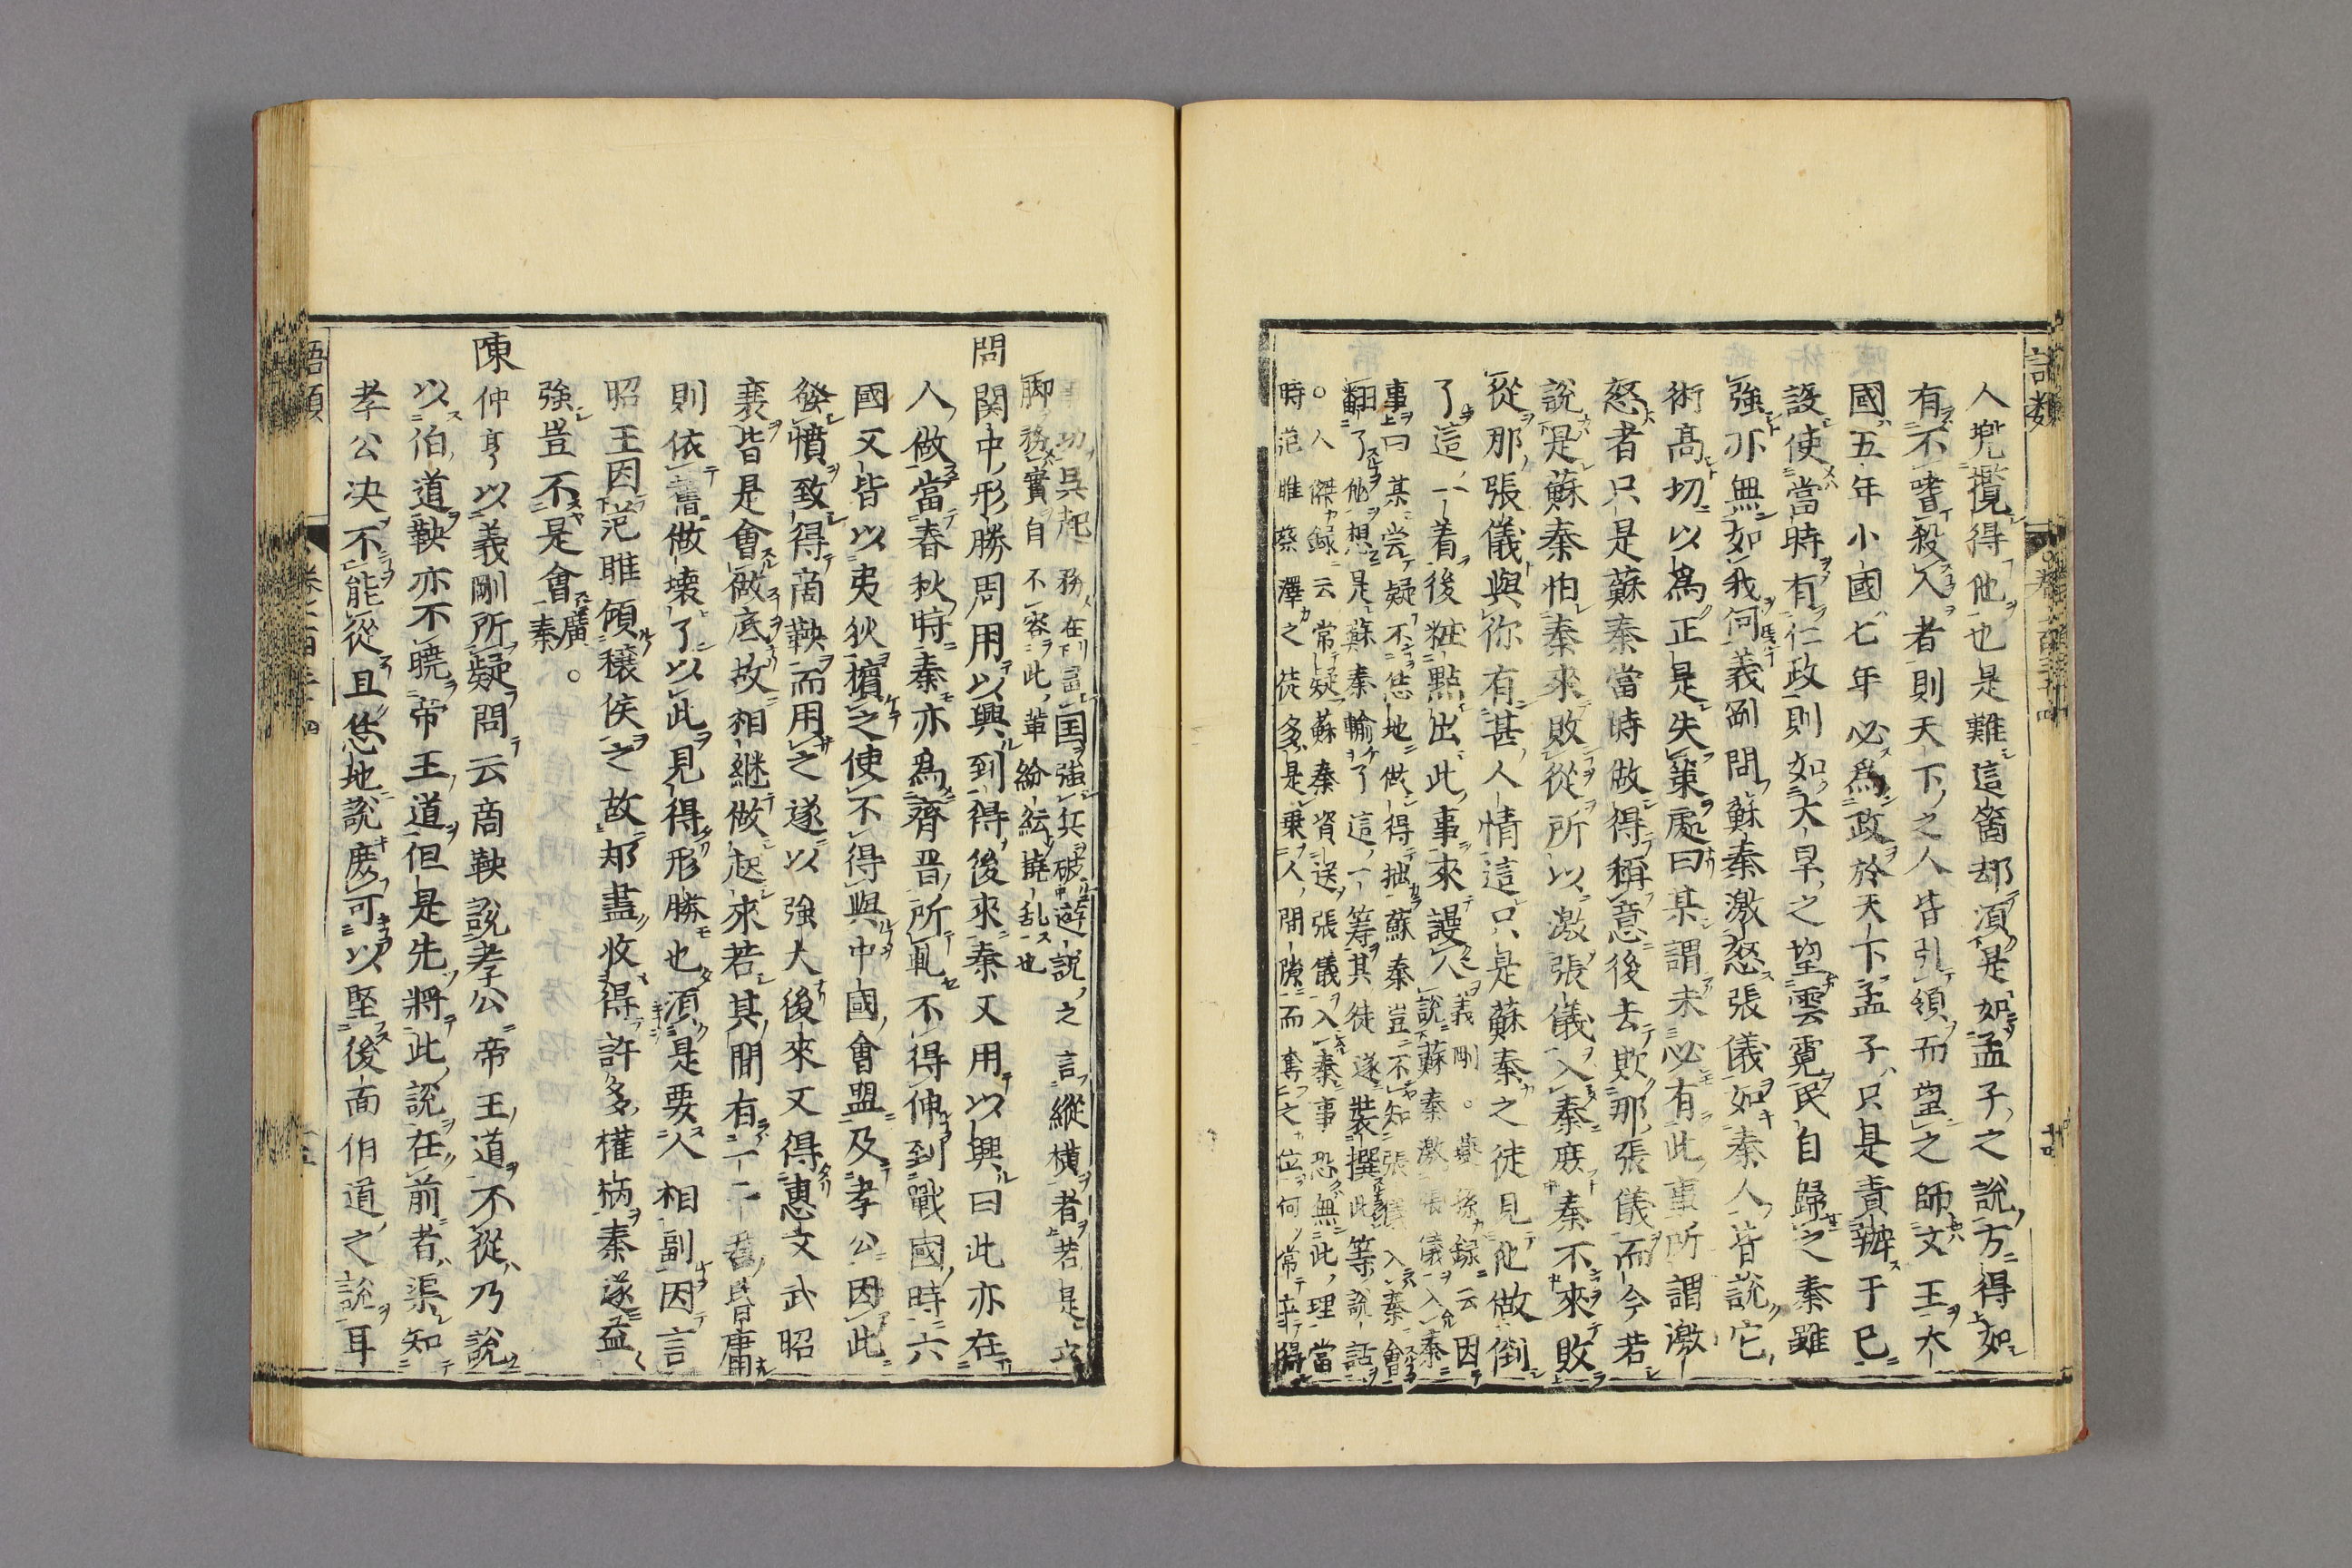 人兜攬得他也是難這箇却須是如孟子之說方得如
有不嗜殺人者則天下之人皆引領而望之師文王大
國五年小國七年必為政於天下孟子只是責辦于己
設使當時有仁政則如大旱之望雲霓民自歸之秦雖
強亦無如我何義剛問蘇秦激怒張儀如秦人皆說它
術高切以為正是失策處曰某謂未必有此事所謂激
怒者只是蘇秦當時做得稱意後去欺那張儀而今若
說是蘇秦怕秦來敗從所以激張儀入秦庶秦不來敗
從那張儀與你有甚人情這只是蘇秦之徒見他做倒
了這一着後粧點出此事來謾人義剛。夔孫録云因
說蘇秦激張儀入秦
事曰某嘗疑不恁地做得拙蘇秦豈不知張儀入秦會
翻了他想是蘇秦輸了這一筹其徒遂裝撰此等說話
○人傑録云常疑蘇秦資送張儀入秦事恐無此理當
時范雎蔡澤之徒多是乗人間隙而奪之位何常立得
事功吳起務在
言国強兵破遊說之言縱橫者若是立
脚務實自不容此輩紛紜撓乱也
問関中形勝周用以興到得後來秦又用以興曰此亦在
人做當春秋時秦亦為齊晋所軋不得伸到戰國時六
國又皆以夷狄擯之使不得與中國會盟及孝公因此
發憤致得商鞅而用之遂以強大後來又得惠文武昭
襄皆是會做底故相継做起來若其間有一二昏庸
則依舊做壊了以此見得形勝也須是要人相副因言
昭王因范雎傾穰侯之故却盡收得許多權柄秦遂益
強豈不是會廣。
陳仲亨以義剛所疑問云商鞅說孝公帝王道不從乃說
以伯道鞅亦不曉帝王道但是先將此說在前者渠知
孝公决不能從且恁地說庶可以堅後面伯道之說耳